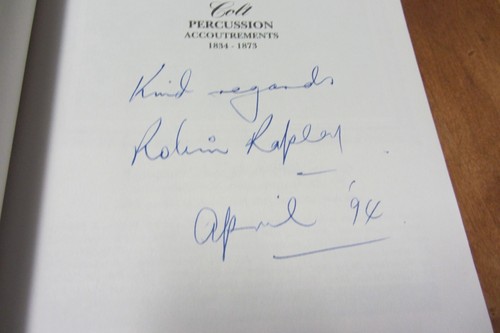 Colt
PERCUSSION
ACCOUTREMENTS
1834 - 1873
Kind regards
Robin Rapley
April '94